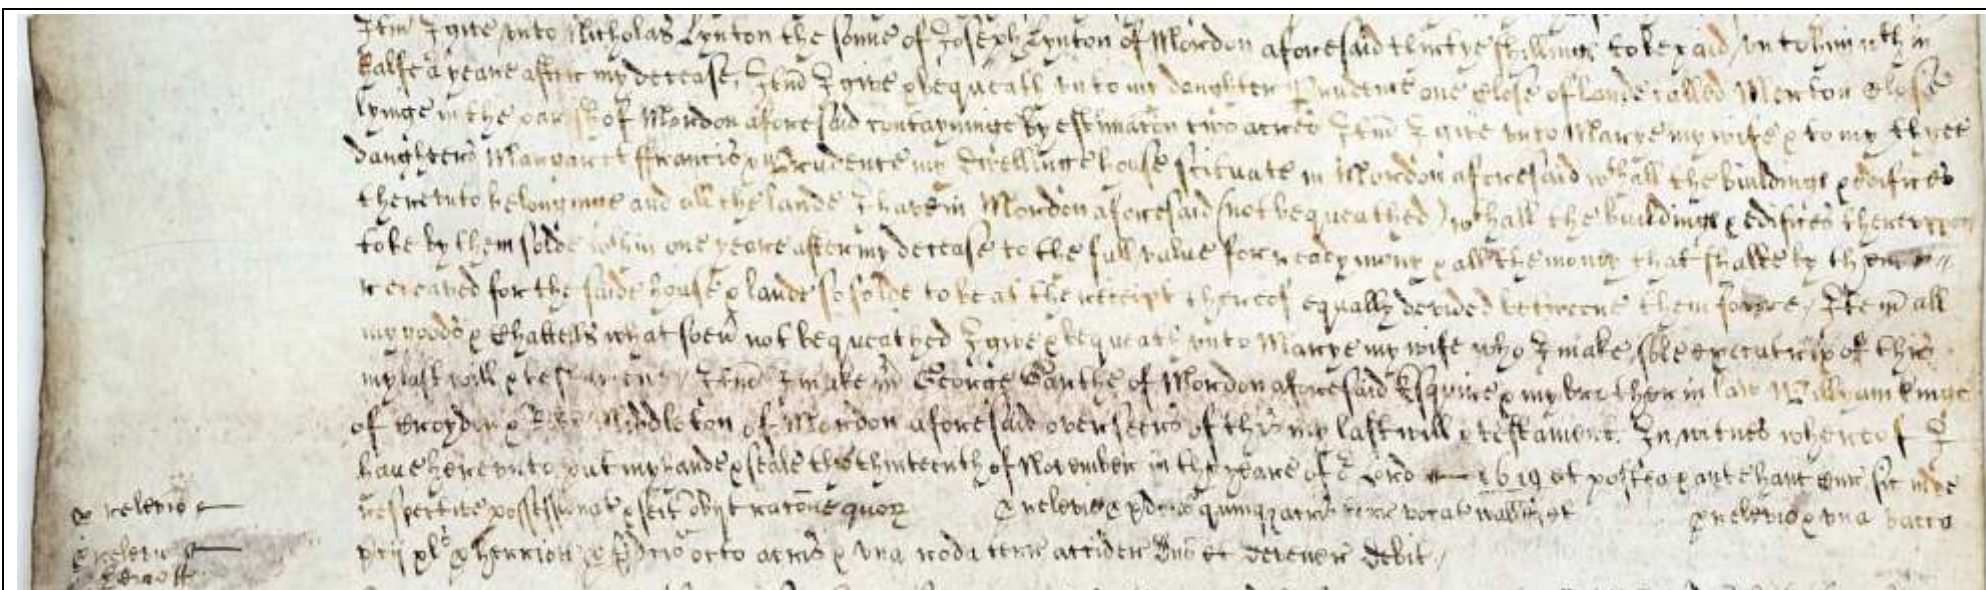 Itm I give unto Nicholas Lynton the sonne of Joseph Lynton of Mordon aforesaid thirtye shillings to be paid unto him wthin
halfe a yeare after my decease. Itm I give & bequeath unto my daughter Prudence one close of lande called Merton Close
lyinge in the parish of Mordon aforesaid contayninge by estimacon two acres Itm I give unto Marye my wife & to my three
daughters Margarett ffrancis & Prudence my dwellinge house scituate in Mordon aforesaid wth all the buildings & edifices
thereunto belonginge and all the lande I have in Mordon aforesaid (not bequeathed) wth all the buildings & edifices thereuppon
to be by them solde wthin one yeare after my decease to the full value for readey mony & all the mony that shalbe by them
received for the saide house & lande so solde to be at the receipt thereof equally devided betweene them fowre / Itm all
my goods & Chattells what soevr not bequeathed I give & bequeath unto Marye my wife who I make sole executrix of this
my last will & testament / Itm I make mr George Garthe of Mordon aforesaid Esquire & my brother in law William Kinge
of Croydon & Middleton of Mordon aforesaid overseers of this my last will & testament. In witnes whereof I
have hereunto put my hande & seale the thirteenth of November in the yeare of or Lord 1619 et postea
respective possessionat & seit obijt racone quor & relevio & pdcis quinq acris terr vocat & relevio & una vacca
& relevio
prij & herriott & pdcis octo acris & una roda terr acciden dno et devener debit /
& relevio
& herriott